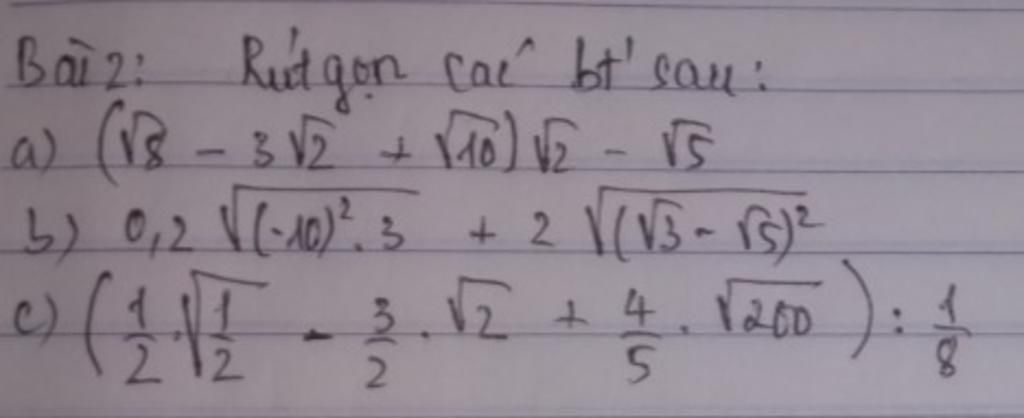 Bài 2: Rút gọn các bt' sau:
a) (√8 - 3√2 + √10)√2 - √5
b) 0,2 √((-10)².3) + 2 √((√3 - √5)²)
c) (1/2.√(1/2) - 3/2.√2 + 4/5.√200) : 1/8